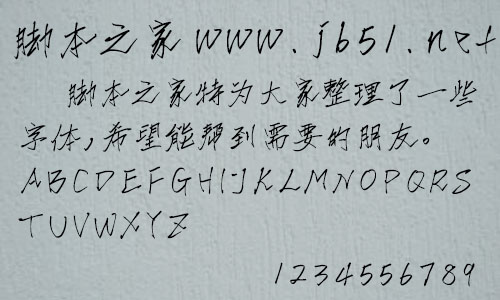 脚本之家 www.jb51.net
脚本之家特为大家整理了一些
字体,希望能帮到需要的朋友。
ABCDEFGHIJKLMNOPQRS
TUVWXYZ
1234556789